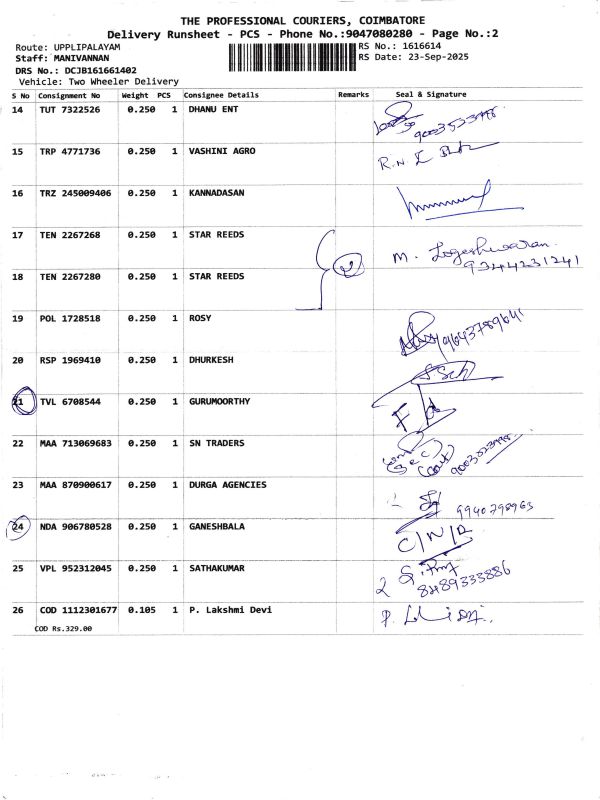 THE PROFESSIONAL COURIERS, COIMBATORE
Delivery Runsheet - PCS - Phone No.:9047080280 - Page No.:2
Route: UPPLIPALAYAM
Staff: MANIVANNAN
DRS No.: DCJB161661402
Vehicle: Two Wheeler Delivery
RS No.: 1616614
RS Date: 23-Sep-2025
S No Consignment No Weight PCS Consignee Details Remarks Seal & Signature
14 TUT 7322526 0.250 1 DHANU ENT
15 TRP 4771736 0.250 1 VASHINI AGRO
16 TRZ 245009406 0.250 1 KANNADASAN
17 TEN 2267268 0.250 1 STAR REEDS
M. Logeshwaran
9344231241
18 TEN 2267280 0.250 1 STAR REEDS
19 POL 1728518 0.250 1 ROSY
20 RSP 1969410 0.250 1 DHURKESH
21 TVL 6708544 0.250 1 GURUMOORTHY
22 MAA 713069683 0.250 1 SN TRADERS
23 MAA 870900617 0.250 1 DURGA AGENCIES
9940798963
24 NDA 906780528 0.250 1 GANESHBALA
25 VPL 952312045 0.250 1 SATHAKUMAR
8489333886
26 COD 1112301677 0.105 1 P. Lakshmi Devi
COD Rs.329.00